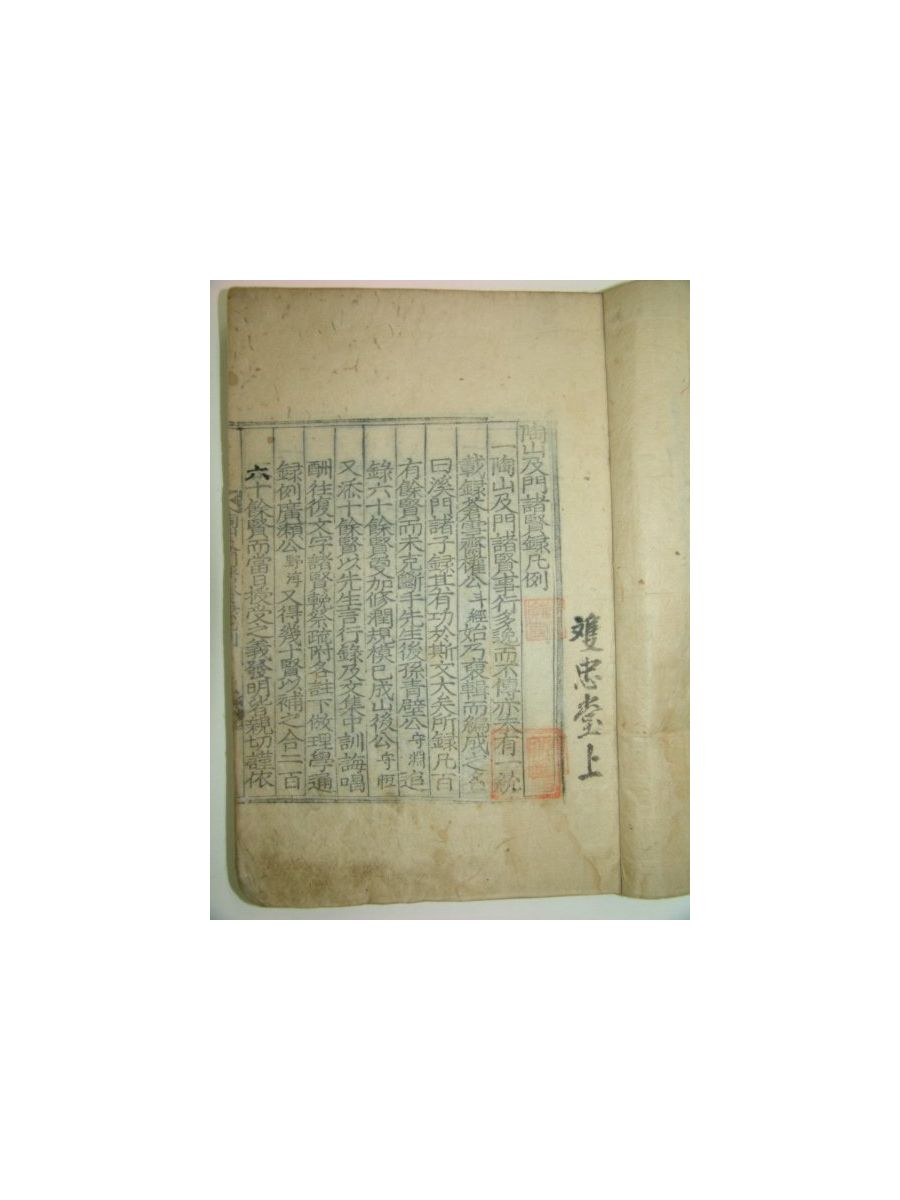 雙忠堂上
陶山及門諸賢録凡例
一陶山及門諸賢事行多逸而不傳亦未有一統
載録蒼雪齋權公斗經始乃裒輯而編成之名
曰溪門諸子録其有功於斯文大矣所録凡百
有餘賢而未克斷手先生後孫青壁公守淵追
錄六十餘賢爰加修潤規模已成山後公守恒
又添十餘賢以先生言行錄及文集中訓誨唱
酬往復文字諸賢輓祭疏附各註下倣理學通
録例廣瀬公野淳又得幾十賢以補之合二百
六十餘賢而當日授受之義發明此親切謹依